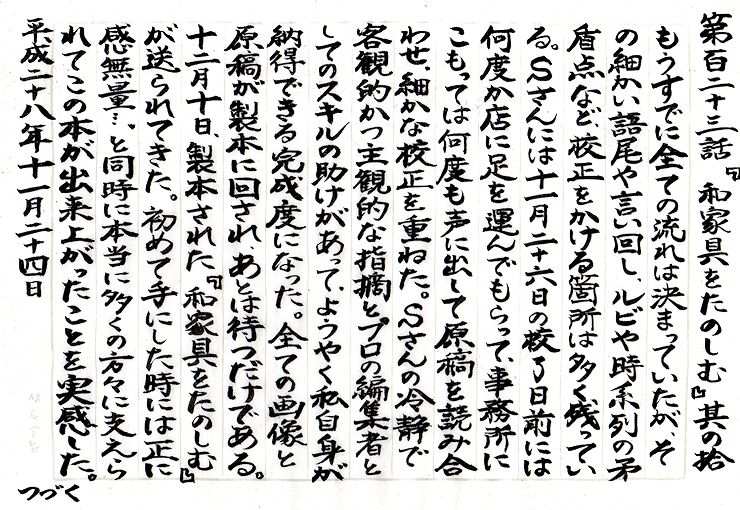 第百二十三話『和家具をたのしむ』其の拾
もうすでに全ての流れは決まっていたが、そ
の細かい語尾や言い回し、ルビや時系列の矛
盾点など、校正をかける箇所は多く残ってい
る。Sさんには十一月二十六日の校了日前には
何度か店に足を運んでもらって、事務所に
こもっては何度も声に出して原稿を読み合
わせ、細かな校正を重ねた。Sさんの冷静で
客観的かつ主観的な指摘と、プロの編集者と
してのスキルの助けがあって、ようやく私自身が
納得できる完成度になった。全ての画像と
原稿が製本に回され、あとは待つだけである。
十二月十日、製本された『和家具をたのしむ』
が送られてきた。初めて手にした時には正に
感無量…、と同時に本当に多くの方々に支えら
れてこの本が出来上がったことを実感した。
平成二十八年十一月二十四日
つづく